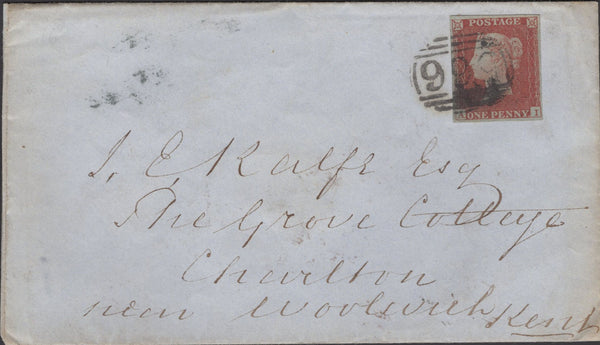 POSTAGE
ONE PENNY I
J. E. Kalfe Esq
The Grove College
Charlton
near Woolwich Kent